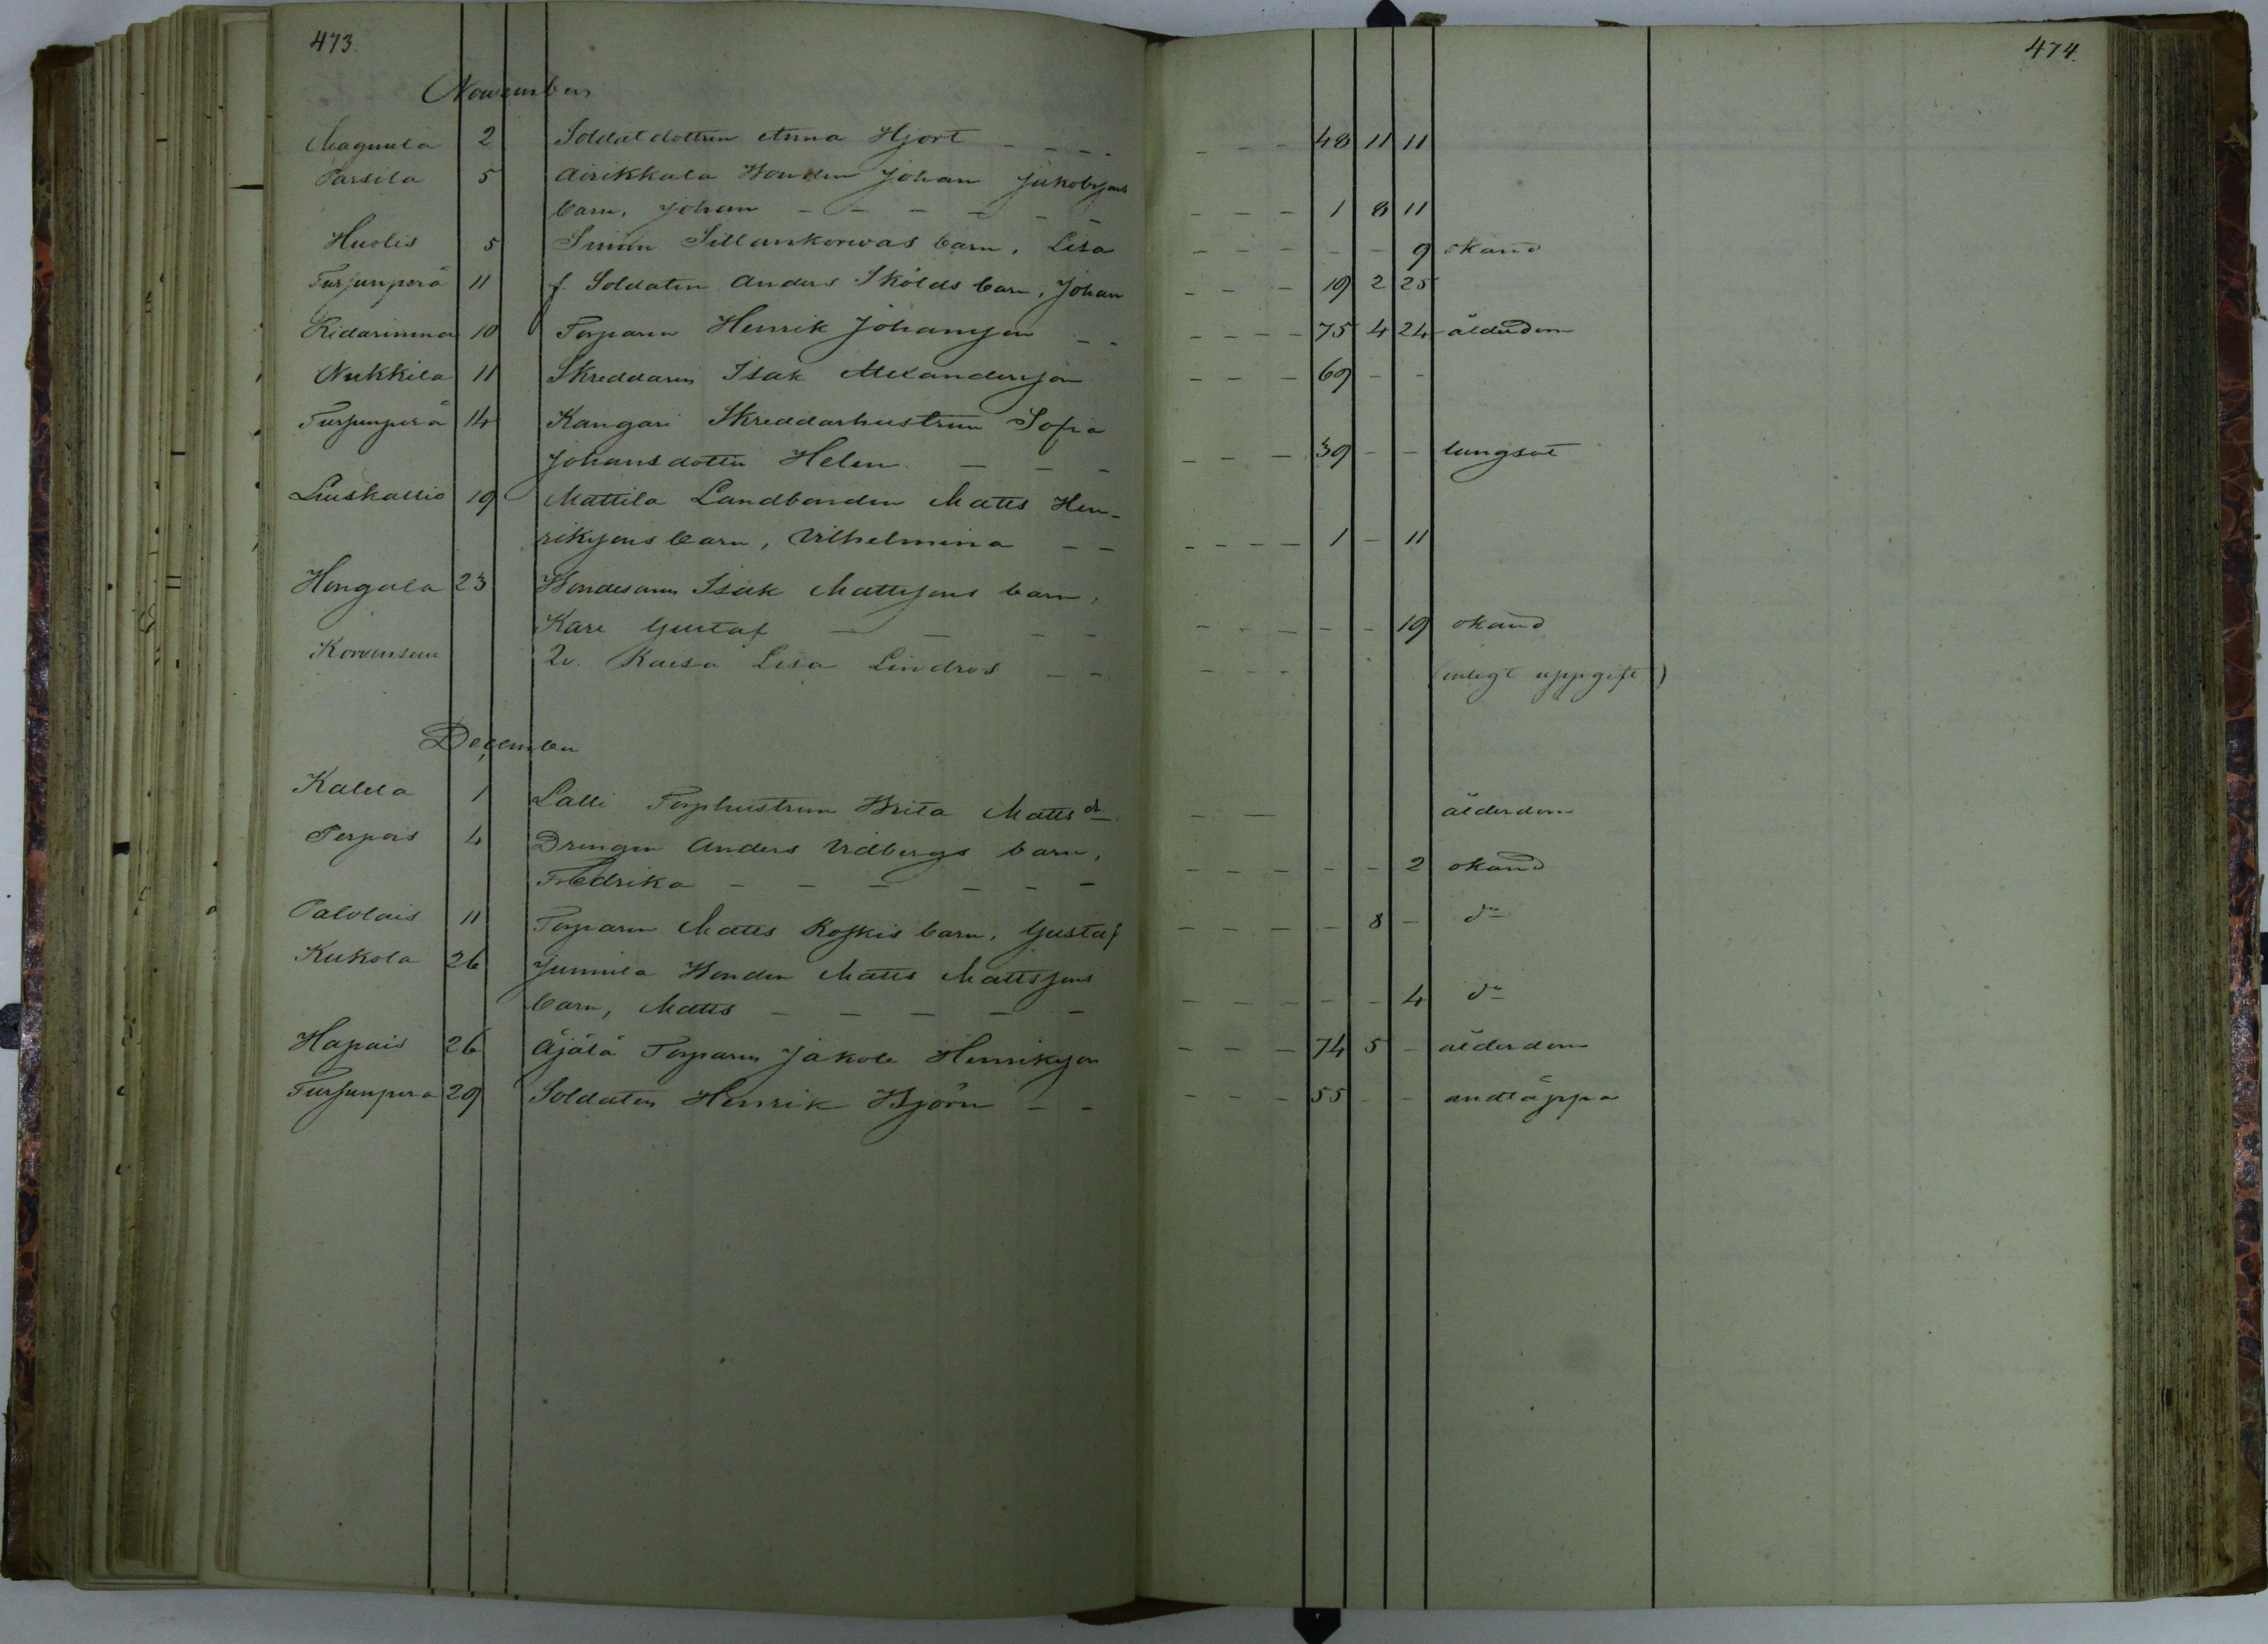 473.
474.
November
Magnula 2 Soldatdottren Anna Hjort - - - - - - - 48 11 11
Parsila 5 Airikkala Bonden Johan Jakobssons
barn, Johan - - - - - - - - - 1 8 11
Huolis 5 Smen Sillankorwas barn, Lisa - - - - - 9 okänd
Turjunperä 11 f. Soldaten Anders Skölds barn, Johan - - - 19 2 25
Kidarinma 10 Torparen Henrik Johansson - - - - - - 75 4 24 ålderdom
Nukkila 11 Skreddaren Isak Alexandersson - - - 69 - -
Turjunperä 14 Kangari Skreddarhustrun Sofia
Johansdotter Helen - - - - - - 39 - - lungsot
Liuskallio 19 Mattila Landbonden Matts Hen-
rikssons barn, Vilhelmina - - - - - - 1 - 11
Hongala 23 Bondesonen Isak Mattssons barn,
Karl Gustaf - - - - - - - - - 19 okänd
Korvensuu Qv. Kaisa Lisa Lindros - - - - - (enligt uppgift)
December
Kalela 1 Lalli Torphustrun Brita Matts dr - - ålderdom
Perpois 4 Drengen Anders Vidbergs barn,
Fredrika - - - - - - - - - - - 2 okänd
Palolais 11 Torparen Matts Koskis barn, Gustaf - - - - 8 - do
Kukola 26 Junnila Bonden Matts Mattssons
barn, Matts - - - - - - - - - - 4 do
Hapais 26 Äjälä Torparen Jakob Henriksson - - - 74 5 - ålderdom
Turjunpera 29 Soldaten Henrik Björn - - - - - 55 - - andtäppa